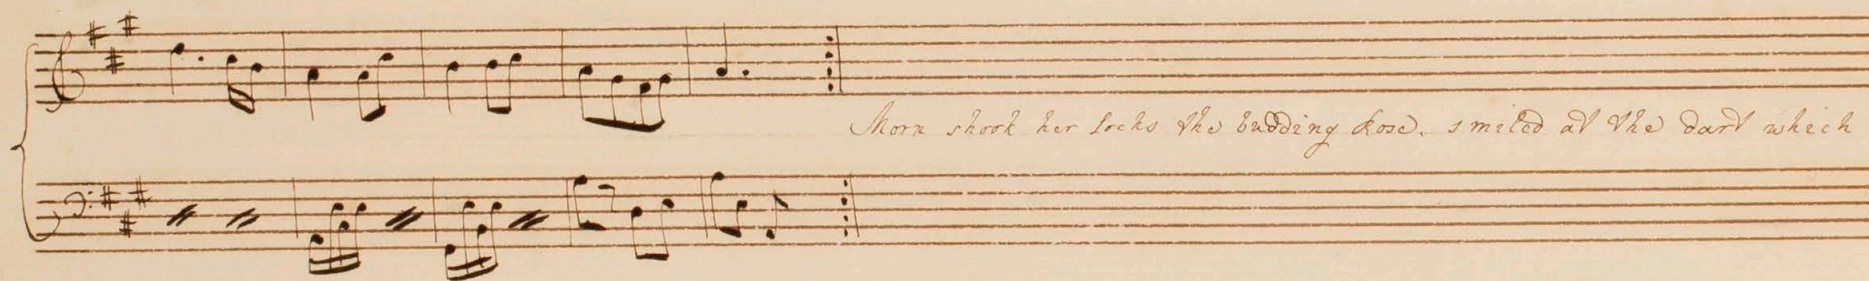 Morn shook her locks the budding Rose, smiled at the dart which